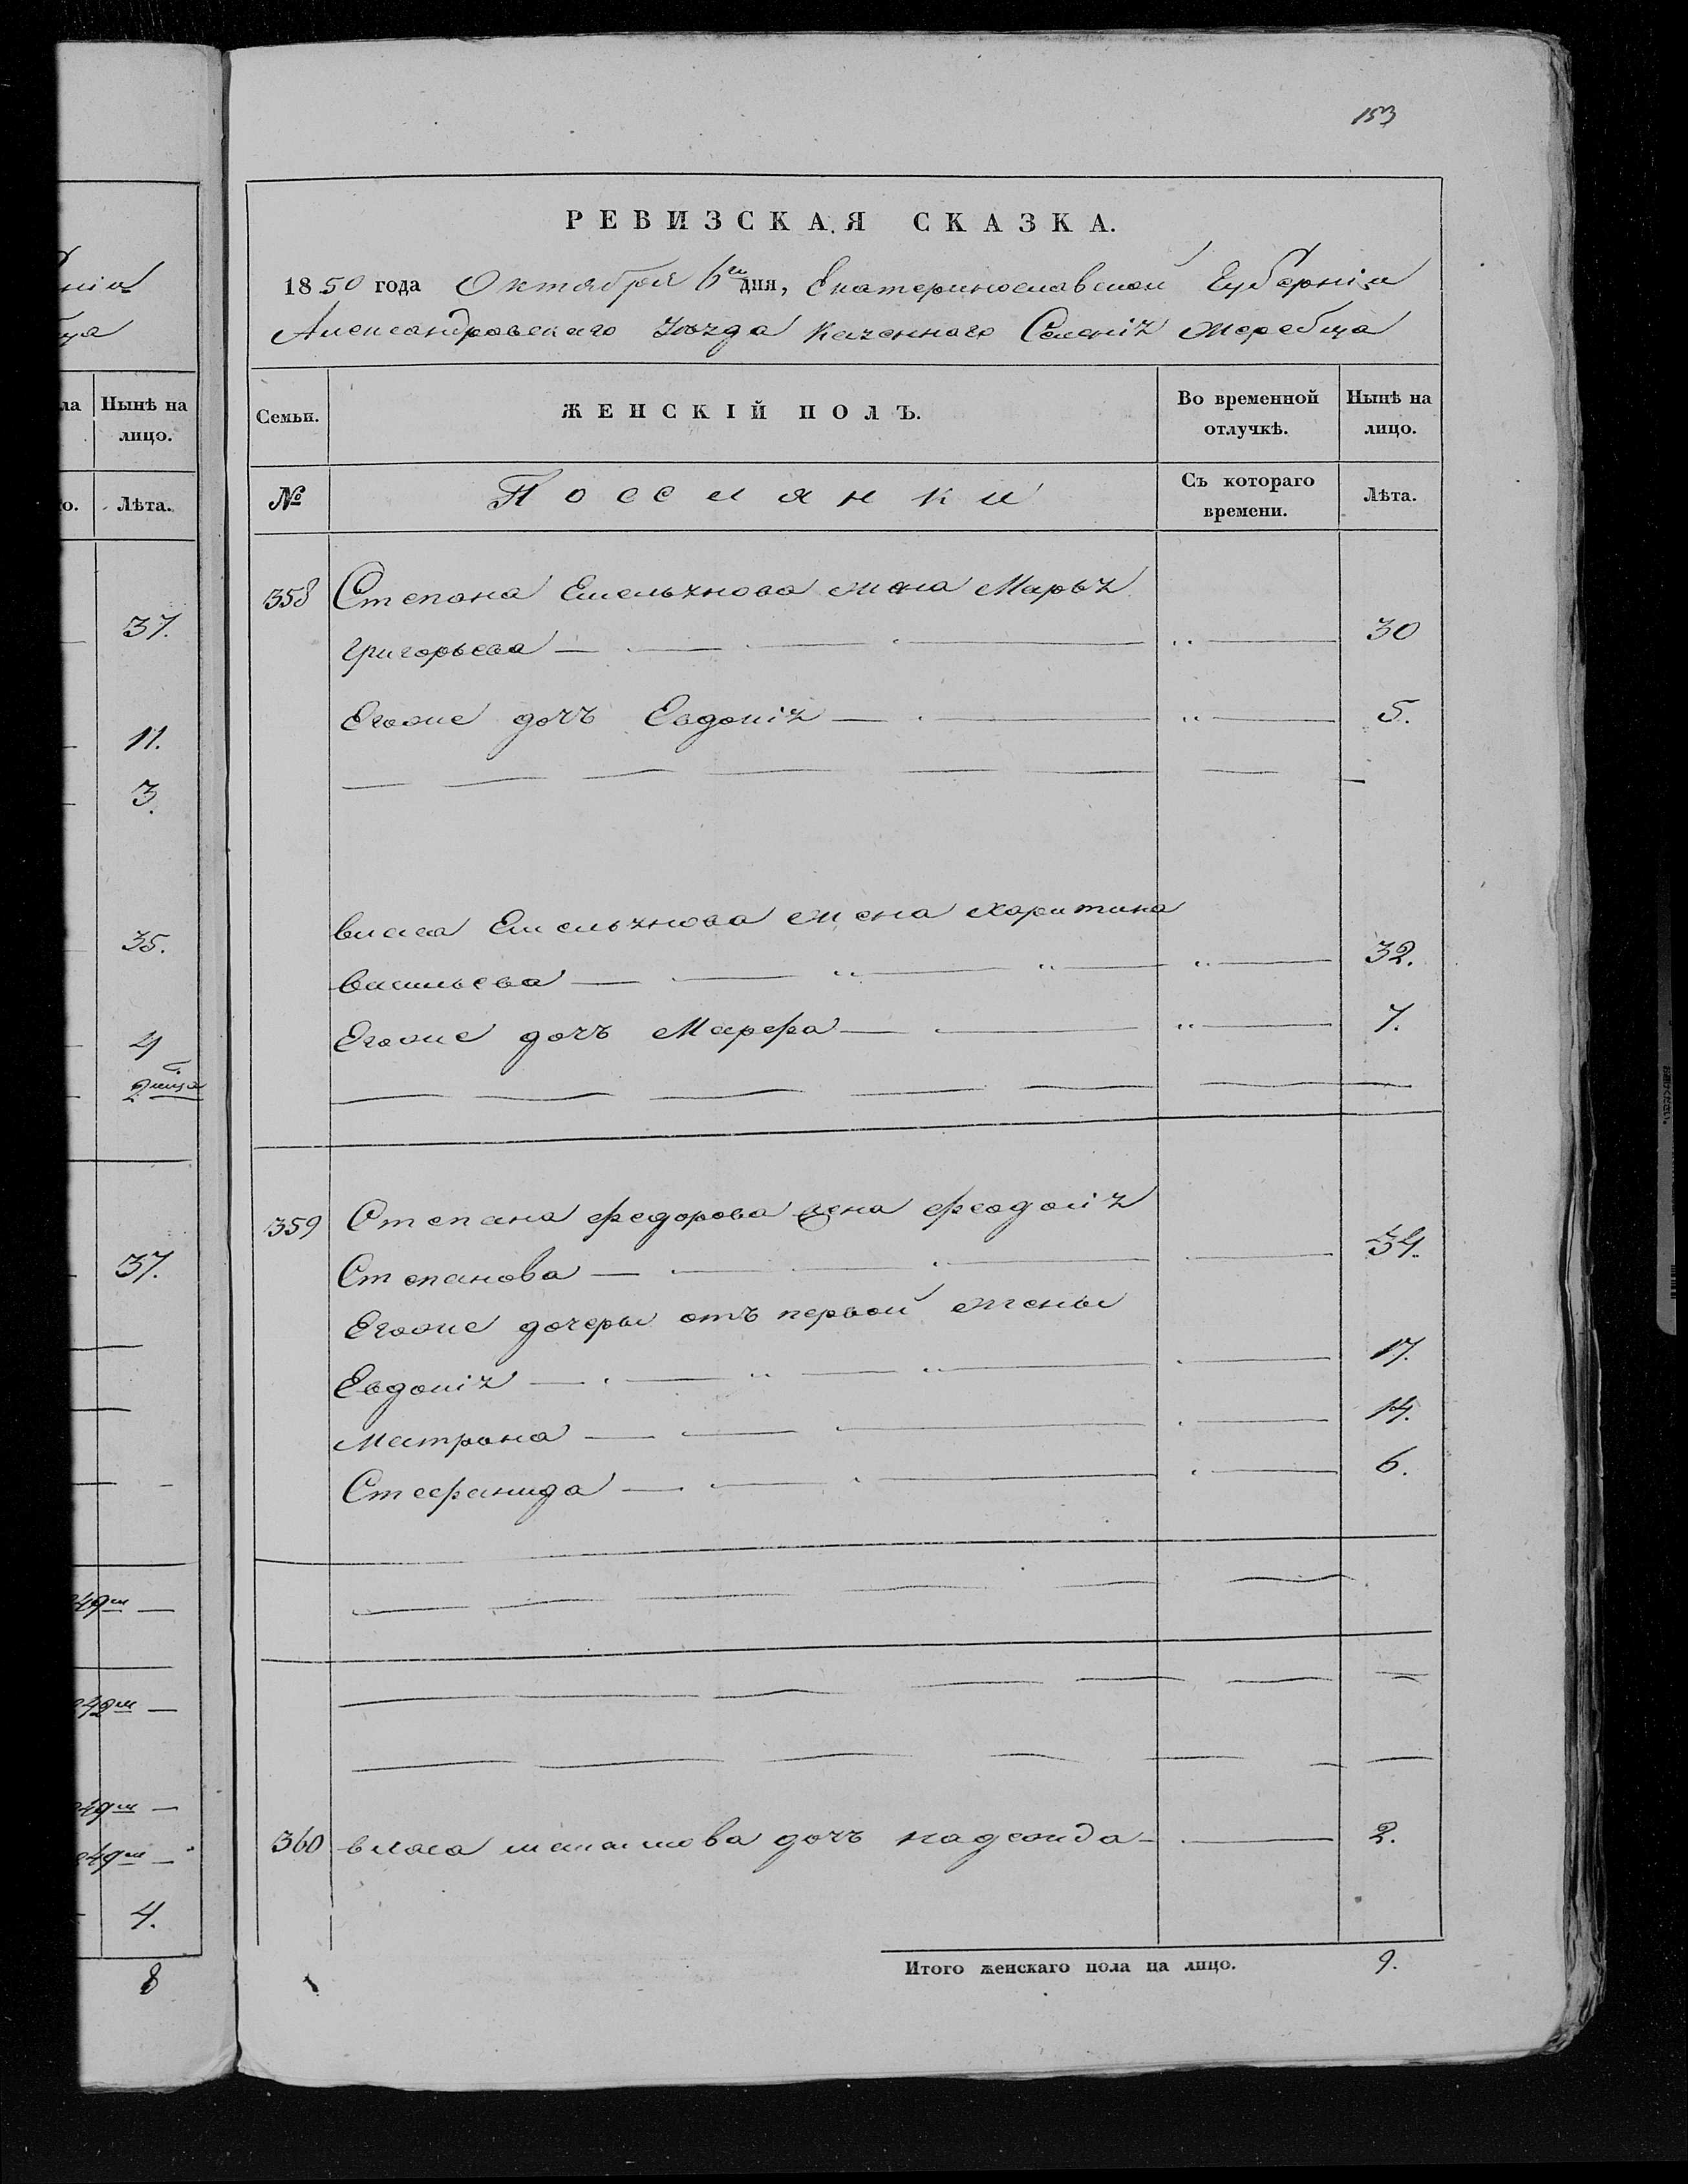 153
РЕВИЗСКАЯ СКАЗКА.
1850 года Октября 6го дня, Екатеринославской Губерніи
Александровскаго Уѣзда Казенного Селенія Жеребца
Семьи. ЖЕНСКІЙ ПОЛЪ. Во временной отлучкѣ. Нынѣ на лицо.
№ Поселянки Съ котораго времени. Лѣта.
358 Степана Емельянова жена Марья
Григорьева 30
Егоже дочь Евдокія 5.
власа Емельянова жена Харитина
васильева 32.
Егоже дочь Марфа 7.
359 Степана Федорова жена Феодосія
Степанова 34.
Егоже дочеры отъ первой жены
Евдокія 17.
Матрона 14.
Стефанида 6.
360 власа дочь надежда 2.
Итого женскаго пола на лицо. 9.
нія
ца
ла Нынѣ на лицо.
о. Лѣта.
37.
11.
3.
35.
4
2
37.
49
49
49
4.
8